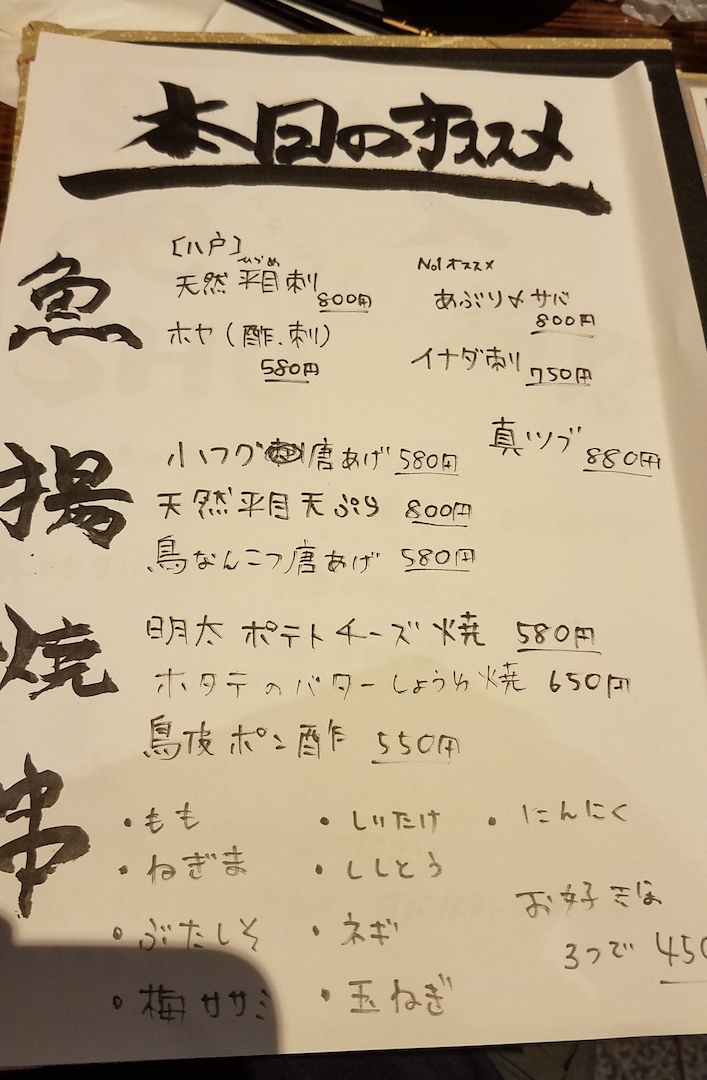 本日のオススメ
魚
[八戸]
ひらめ
天然 平目刺
800円
ホヤ(酢.刺)
580円
No1オススメ
あぶり〆サバ
800円
イナダ刺 750円
真ツブ 880円
揚
小フグ唐あげ 580円
天然平目天ぷら 800円
鳥なんこつ唐あげ 580円
焼
明太ポテトチーズ焼 580円
ホタテのバターしょうゆ焼 650円
鳥皮ポン酢 550円
串
・もも
・ねぎま
・ぶたしそ
・梅ササミ
・しいたけ
・ししとう
・ネギ
・玉ねぎ
・にんにく
お好きな
3つで 450